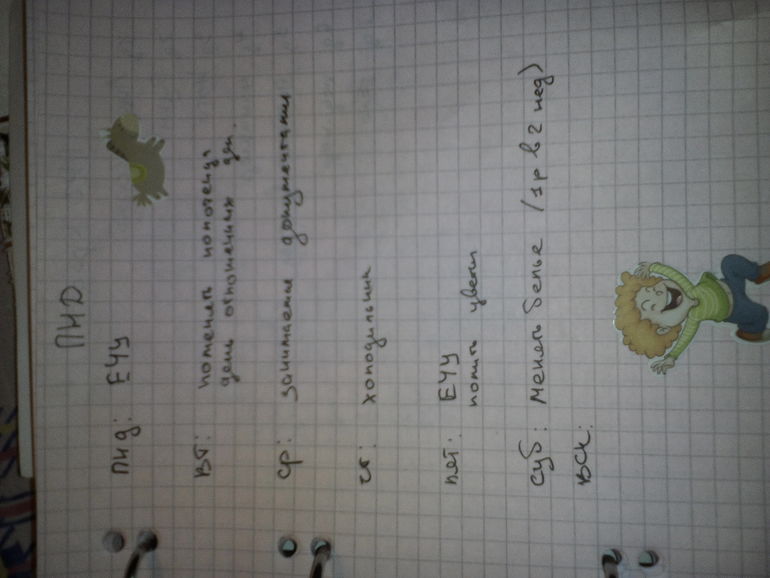 ПНД
ПНД: ЕЧУ
ВТ: поменять полотенца
день отношенных дел.
СР: занимаемся документами
ЧТ: холодильник
ПЯТ: ЕЧУ
полить цветы
СУБ: менять белье (1р в 2 нед)
ВСК: